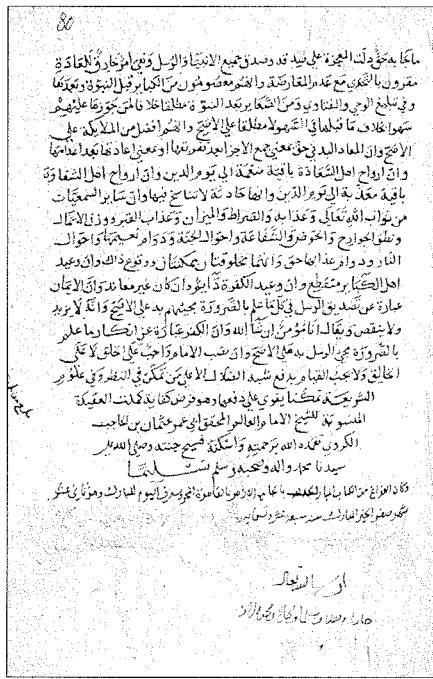 80
ما جاء به حق دلت المعجزة على نبيه قد وصدق جميع الانبياء والرسل وهي امر خارق للعادة
مقرون بالتحدي مع عدم المعارضة وانهم معصومون من الكبائر قبل النبوة وبعدها
وفي تبليغ الوحي والفتاوي ومن الصغاير بعد النبوة مطلقا خلافا لمن جوزها عليهم
سهوا بخلاف ما قبلها في السهو لا مطلقا على الاصح وانهم افضل من الملايكة على
الاصح وان المعاد البدني حق بمعنى جمع الاجزا بعد تفريقها او بمعنى اعادتها بعد اعدامها
وان ارواح اهل السعادة باقية منعمة الى يوم الدين وان ارواح اهل الشقاوة
باقية معذبة الى يوم الدين وانها حادثة لا تناسخ فيها وان ساير السمعيات
من ثواب الله تعالى وعذابه والصراط والميزان وعذاب القبر ووزن الاعمال
ونطق الجوارح والحوض والشفاعة واحوال الجنة ودوام نعيمها واحوال
النار ودوام عذابها حق وانهما مخلوقتان يمكنتان ووقوع ذلك وان وعيد
اهل الكباير منقطع وان وعيد الكفرة دايم وان كان غير معاند وان الايمان
عبارة عن تصديق الرسل في كل ما علم بالضرورة مجيئهم به على الاصح وانه لا يزيد
ولا ينقص ويقال انا مؤمن ان شاء الله وان الكفر عبارة عن انكار ما علم
بالضرورة مجي الرسل به على الاصح وان نصب الامام واجب على الخلق لا على
الخالق ولا يجب القيام بدفع شبه الضلال الا على من تمكن في النظر وفي علوم
الشريعة تمكنا يقوي على دفعها وهو فرض كفاية كملت العقيدة
المنسوبة للشيخ الامام العالم المحقق ابي عمر عثمان بن الحاجب
الكردي تغمده الله برحمته واسكنه فسيح جنته وصلى الله على
سيدنا محمد واله وصحبه وسلم تسليما
وكان الفراغ من الكتاب المبارك بالقاهرة المحروسة في اليوم المبارك وهو ثاني عشر
شهر صفر الخير المبارك سنه سبعه عشر وتسعمايه